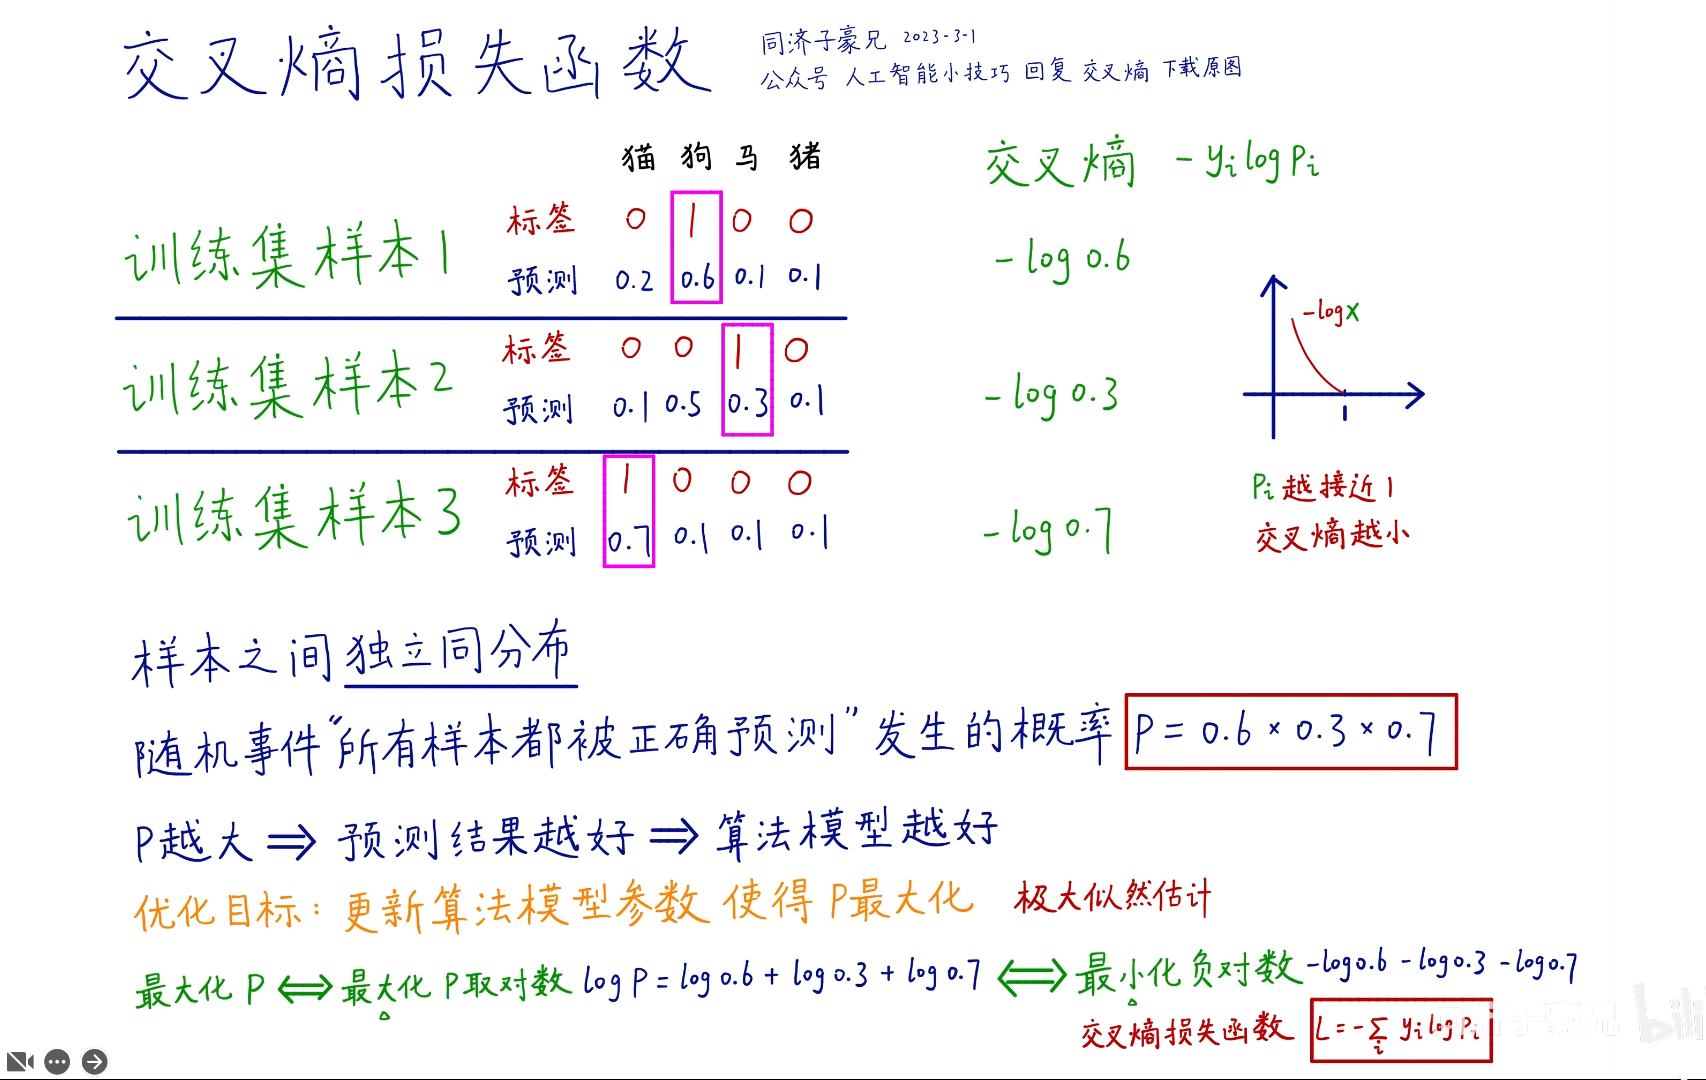 交叉熵损失函数
同济子豪兄 2023-3-1
公众号 人工智能小技巧 回复 交叉熵 下载原图
猫 狗 马 猪
交叉熵 -yᵢlogPᵢ
训练集样本1
标签 0 1 0 0
预测 0.2 0.6 0.1 0.1
-log 0.6
训练集样本2
标签 0 0 1 0
预测 0.1 0.5 0.3 0.1
-log 0.3
训练集样本3
标签 1 0 0 0
预测 0.7 0.1 0.1 0.1
-log 0.7
-logx
1
Pᵢ越接近1
交叉熵越小
样本之间独立同分布
随机事件“所有样本都被正确预测”发生的概率 P = 0.6 × 0.3 × 0.7
P越大 ⇒ 预测结果越好 ⇒ 算法模型越好
优化目标: 更新算法模型参数 使得 P最大化 极大似然估计
最大化 P ⇔ 最大化 P取对数 log P = log 0.6 + log 0.3 + log 0.7 ⇔ 最小化负对数 -log0.6 - log0.3 - log0.7
交叉熵损失函数 L = -∑ᵢ yᵢlogPᵢ
bili